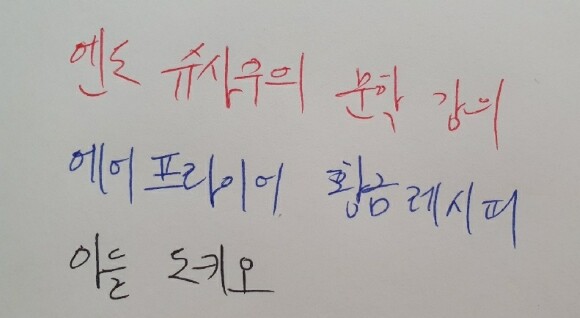 엔도 슈사쿠의 문학 강의
에어프라이어 황금레시피
이들 도키오